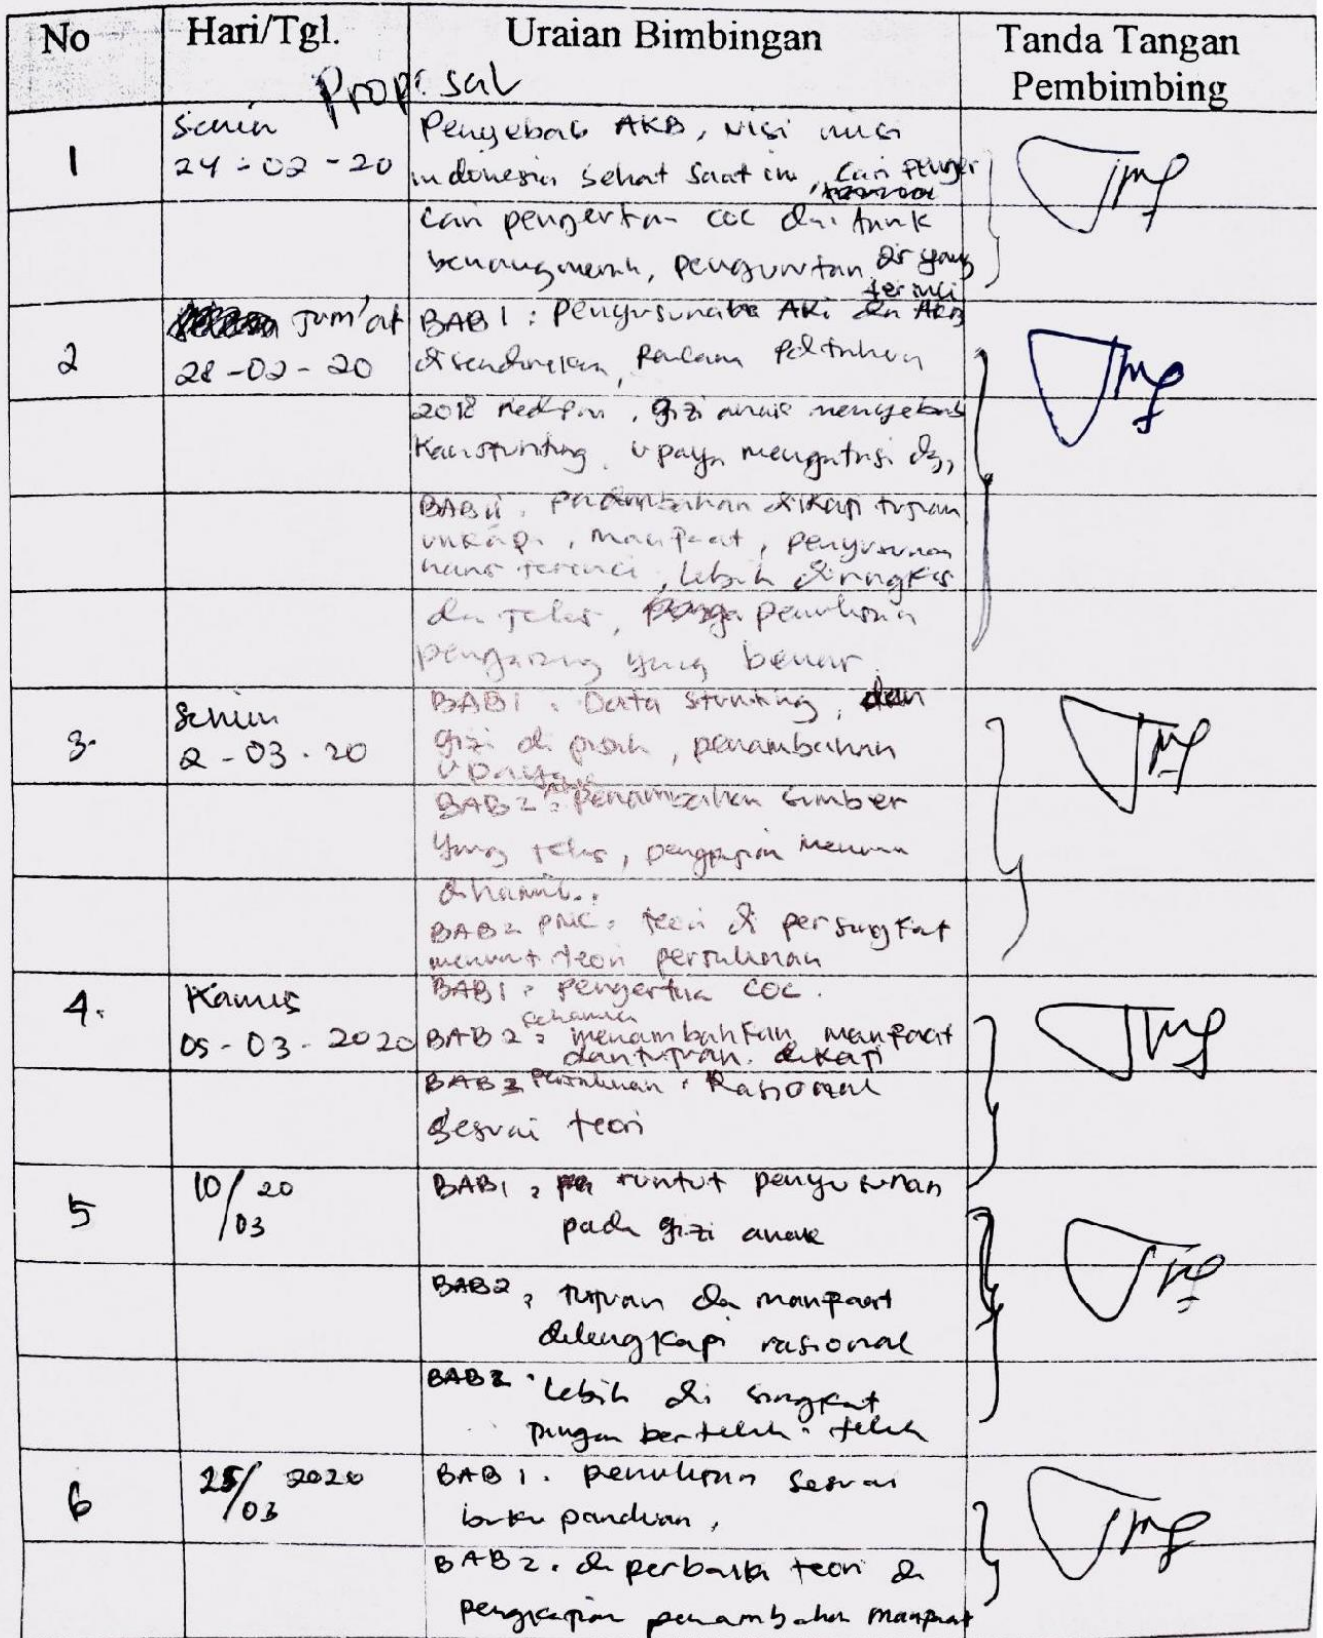 No Hari/Tgl. Uraian Bimbingan Tanda Tangan Pembimbing
Proposal
1 Senin 24-02-20
Penyebab AKB, Visi misi
indonesia sehat saat ini, cari penger
cari pengertian COC dari
benang merah, pengurutan yang
terinci
2 Jum'at 28-02-20
BAB 1 : Penyusunan AKI dan AKB
disendirikan,
2018, gizi anak menyebab
kan stunting, upaya mengatasi
BAB II. Penambahan dikaji tujuan
manfaat, penyusunan
harus terinci, lebih diringkas
dan jelas, penulisan
pengarang yang benar.
3. Senin 2-03-20
BAB 1 : Data stunting, dan
gizi di, penambahan
upaya
BAB 2 : penambahan sumber
yang jelas, pengkajian
BAB 2 PNC : teori di persingkat
menurut teori persalinan
4. Kamis 05-03-2020
BAB 1 : pengertian COC.
BAB 2 : menambahkan manfaat
dan tujuan dikaji
BAB 2 Persalinan : Rasional
sesuai teori
5 10/03 20
BAB 1 : runtut penyusunan
pada gizi anak
BAB 2 : tujuan dan manfaat
dilengkapi rasional
BAB 2 : lebih di singkat
jangan bertele-tele
6 25/03 2020
BAB 1. penulisan sesuai
buku panduan,
BAB 2. di perbaiki teori di
pengkajian penambahan manfaat